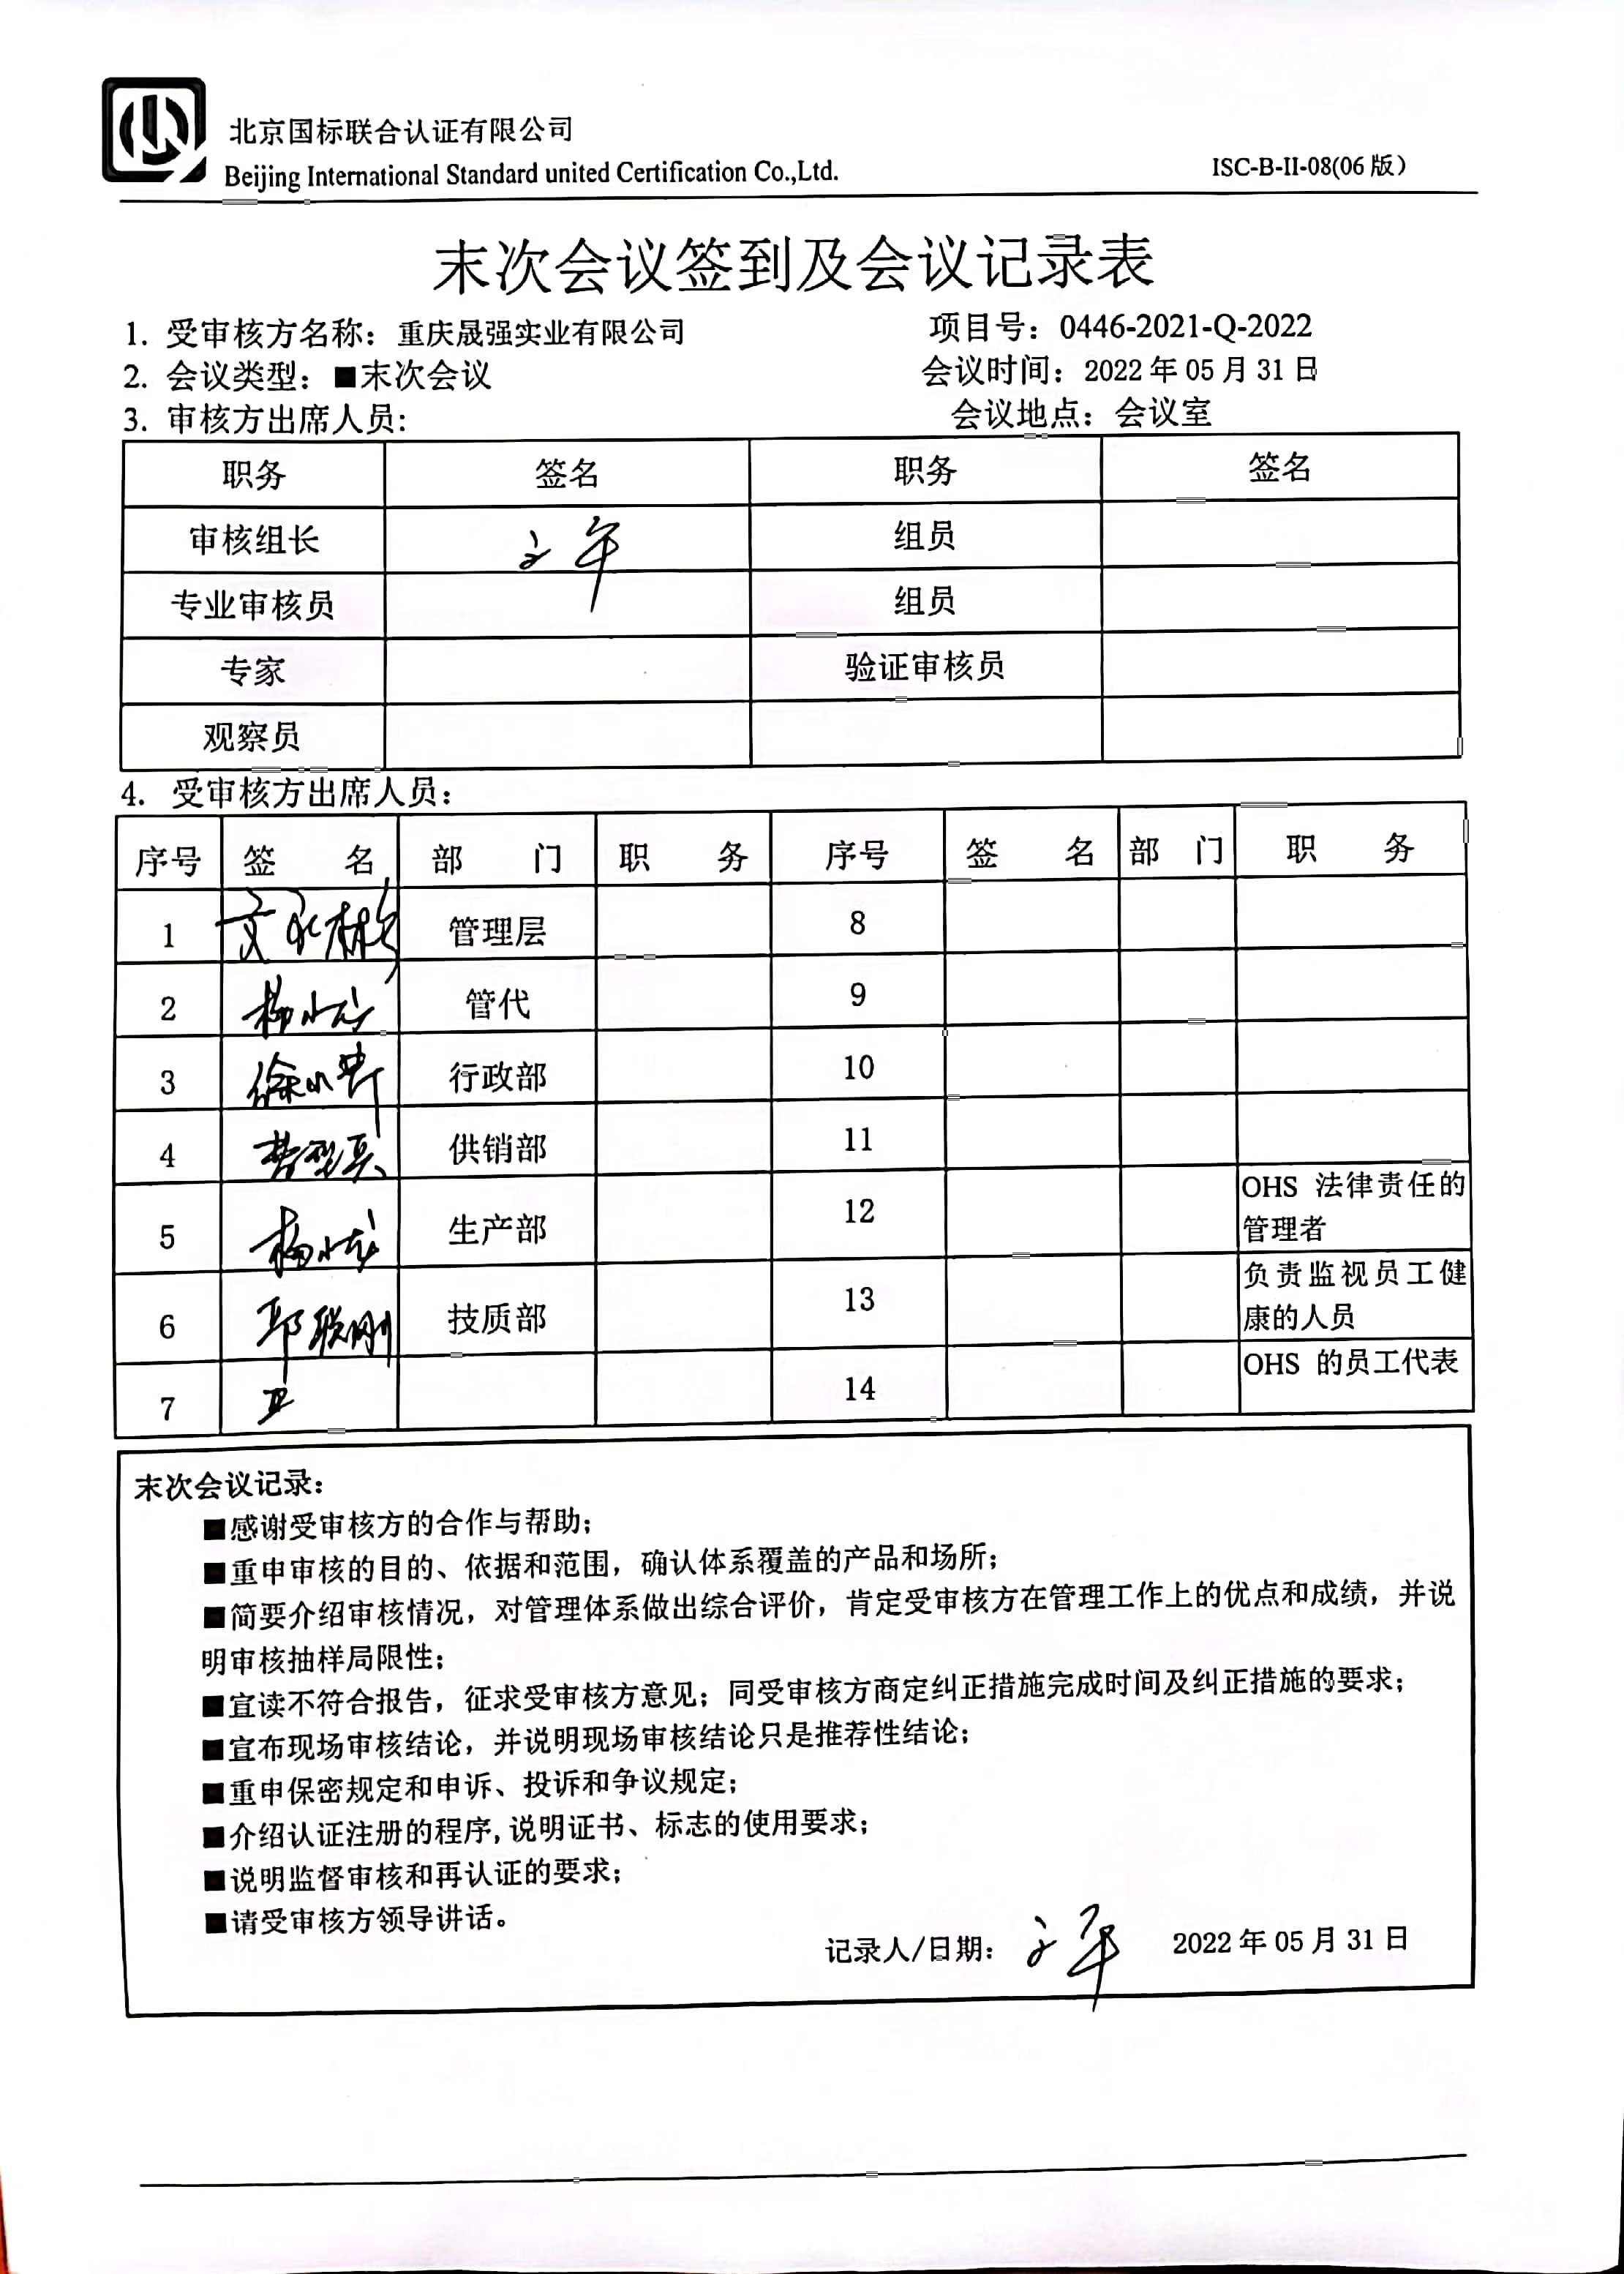 北京国标联合认证有限公司
Beijing International Standard united Certification Co.,Ltd.
ISC-B-II-08(06 版)
末次会议签到及会议记录表
1. 受审核方名称：重庆晟强实业有限公司 项目号：0446-2021-Q-2022
2. 会议类型：■末次会议 会议时间：2022 年 05 月 31 日
3. 审核方出席人员: 会议地点：会议室
职务 签名 职务 签名
审核组长 文平 组员
专业审核员 组员
专家 验证审核员
观察员
4. 受审核方出席人员：
序号 签 名 部 门 职 务 序号 签 名 部 门 职 务
1 管理层 8
2 管代 9
3 行政部 10
4 供销部 11
5 生产部 12 OHS 法律责任的
管理者
6 技质部 13 负责监视员工健
康的人员
7 14 OHS 的员工代表
末次会议记录：
■感谢受审核方的合作与帮助；
■重申审核的目的、依据和范围，确认体系覆盖的产品和场所；
■简要介绍审核情况，对管理体系做出综合评价，肯定受审核方在管理工作上的优点和成绩，并说
明审核抽样局限性；
■宣读不符合报告，征求受审核方意见；同受审核方商定纠正措施完成时间及纠正措施的要求；
■宣布现场审核结论，并说明现场审核结论只是推荐性结论；
■重申保密规定和申诉、投诉和争议规定；
■介绍认证注册的程序,说明证书、标志的使用要求；
■说明监督审核和再认证的要求；
■请受审核方领导讲话。
记录人/日期： 文平 2022 年 05 月 31 日